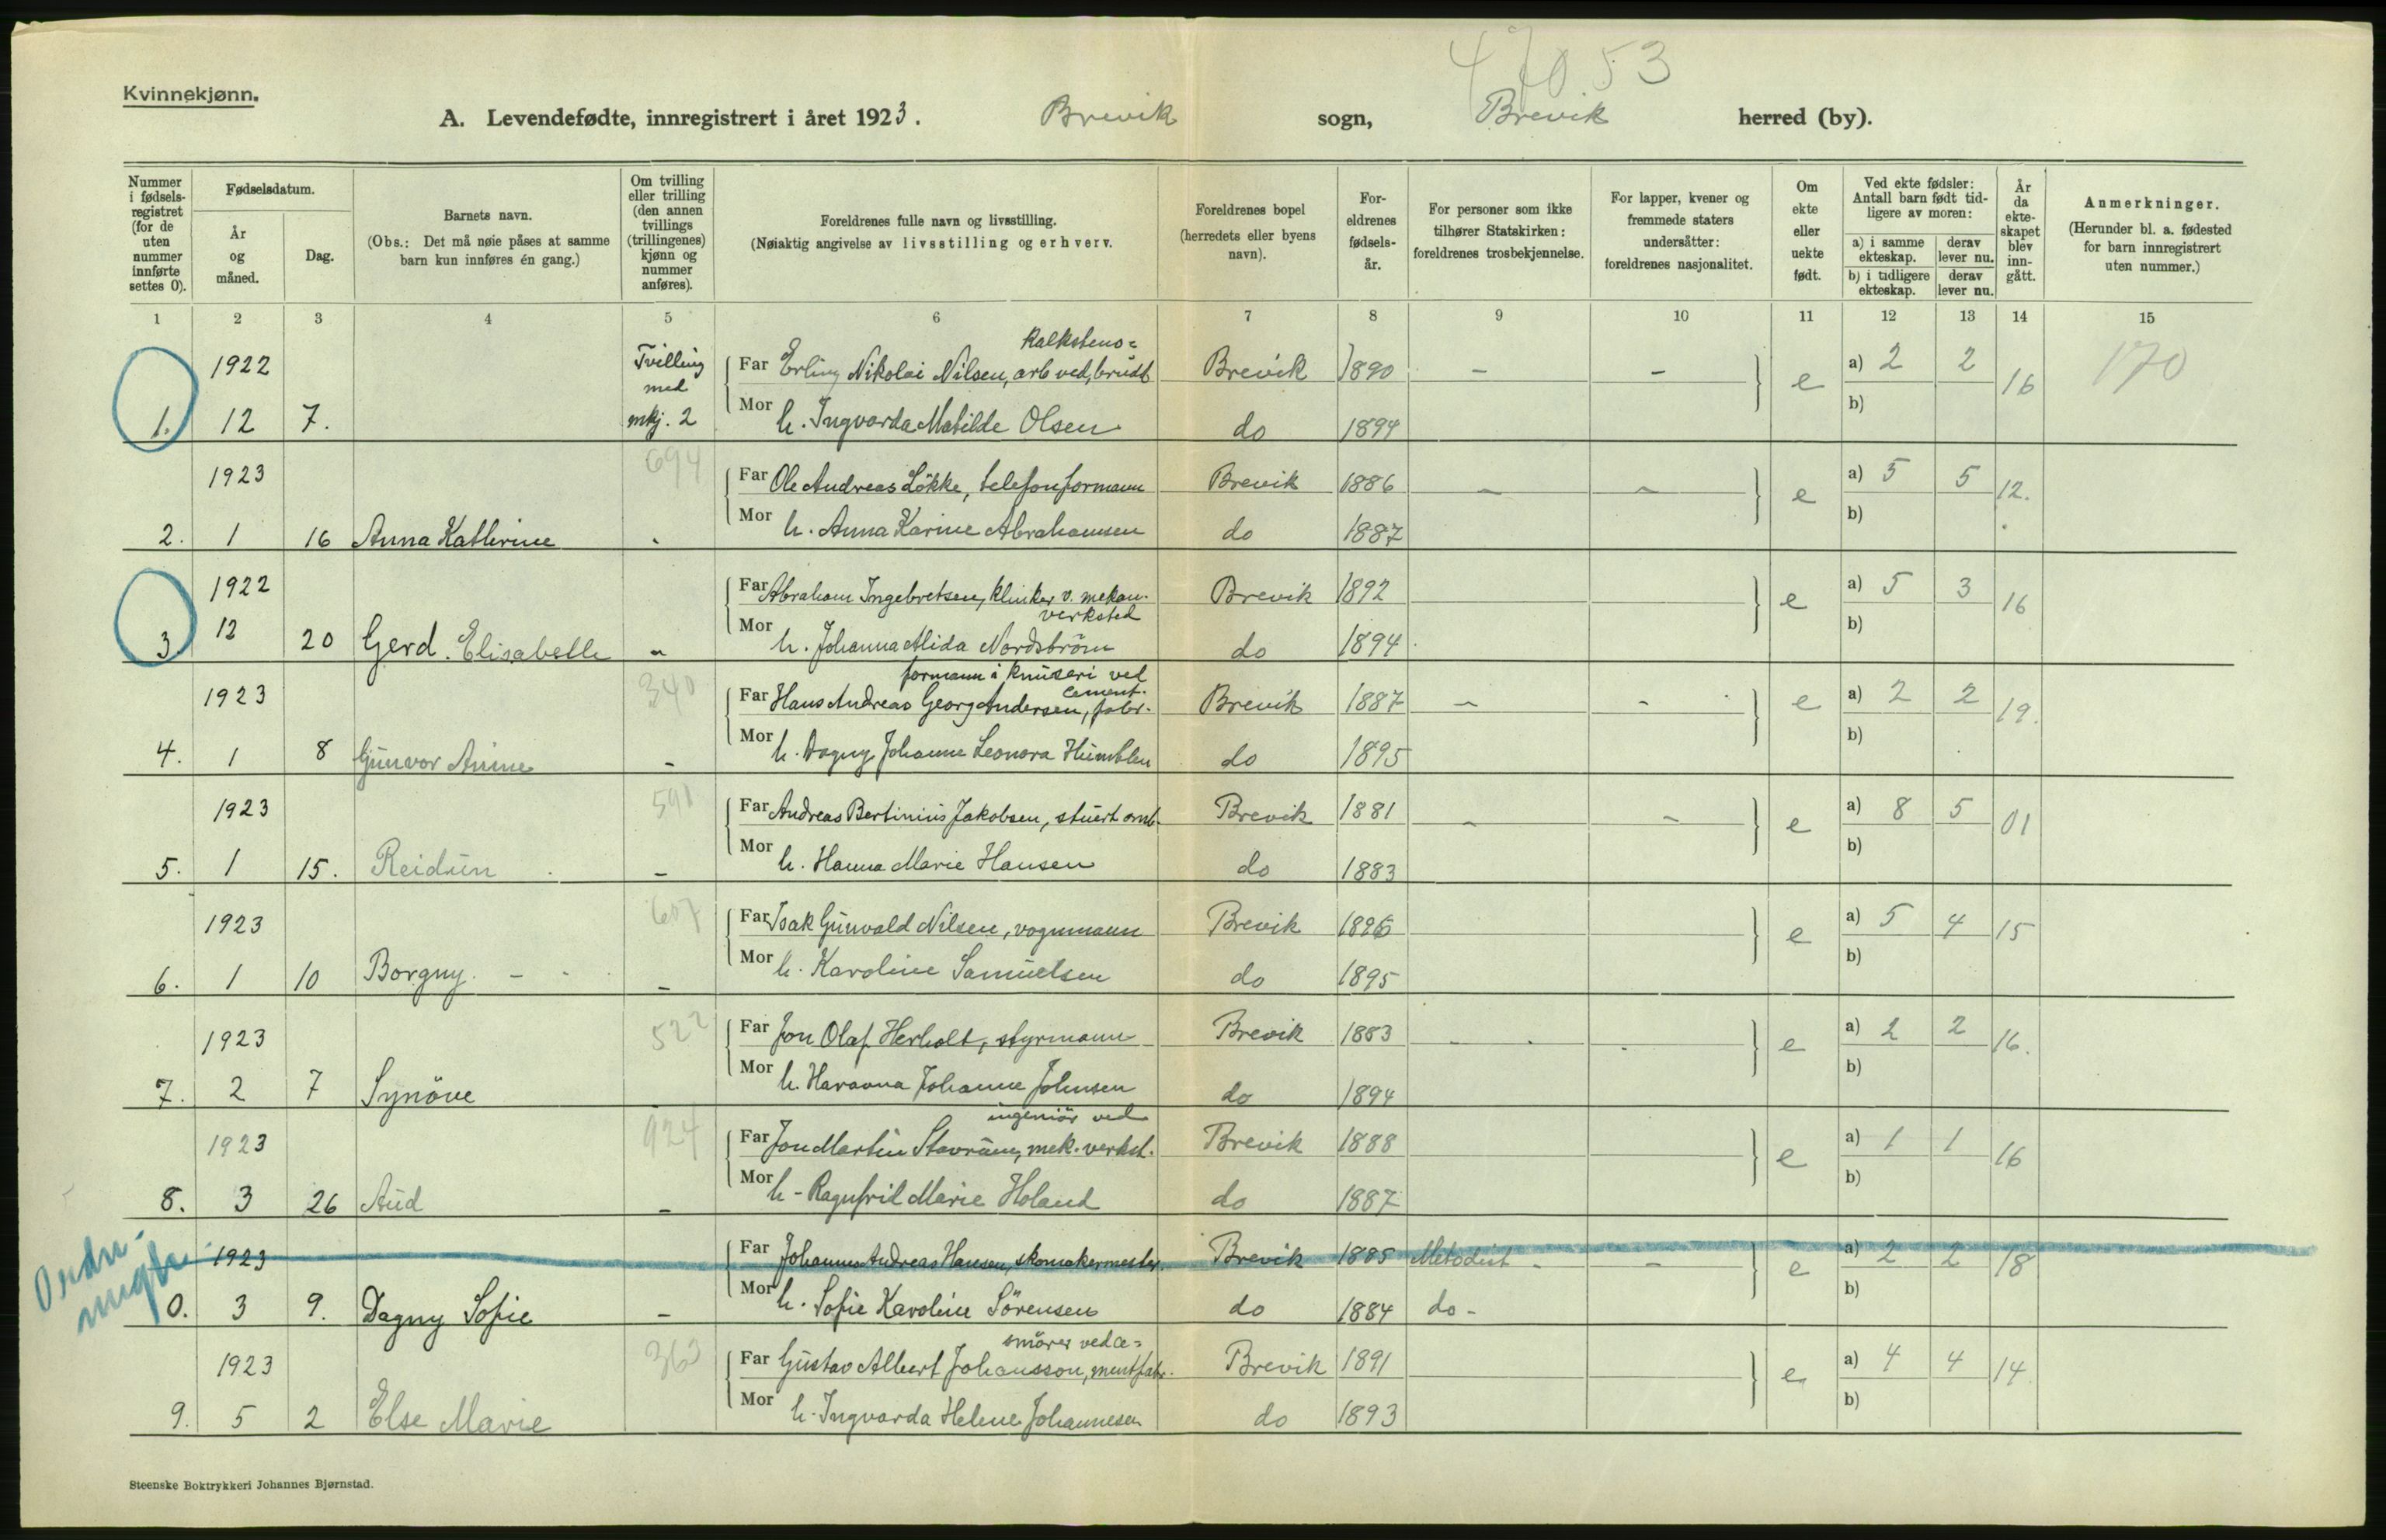 47053
Kvinnekjønn.
A. Levendefødte, innregistrert i året 1923. Brevik sogn, Brevik herred (by).
Nummer i fødselsregistret (for de uten nummer innførte settes 0).
Fødselsdatum.
År og måned.
Dag.
Barnets navn.
(Obs.: Det må nøie påses at samme barn kun innføres én gang.)
Om tvilling eller trilling (den annen tvillings (trillingenes) kjønn og nummer anføres).
Foreldrenes fulle navn og livsstilling.
(Nøiaktig angivelse av livsstilling og erhverv.
Foreldrenes bopel (herredets eller byens navn).
Foreldrenes fødselsår.
For personer som ikke tilhører Statskirken: foreldrenes trosbekjennelse.
For lapper, kvener og fremmede staters undersåtter: foreldrenes nasjonalitet.
Om ekte eller uekte født.
Ved ekte fødsler: Antall barn født tidligere av moren:
a) i samme ekteskap. derav lever nu.
b) i tidligere ekteskap. derav lever nu.
År da ekteskapet blev inngått.
Anmerkninger.
(Herunder bl. a. fødested for barn innregistrert uten nummer.)
1 2 3 4 5 6 7 8 9 10 11 12 13 14 15
kalkstens=
1922 Tvilling med Far Erling Nikolai Nilsen, arb ved, brudt Brevik 1890 - - e a) 2 2 16 170
1. 12 7. mkj. 2 Mor h. Ingvarda Matilde Olsen do 1894 b)
1923 694 Far Ole Andreas Lökke, telefonformann Brevik 1886 - - e a) 5 5 12.
2. 1 16 Anna Kathrine - Mor h. Anna Karine Abrahamsen do 1887 b)
1922 Far Abraham Ingebretsen, klinker v. mekan. verksted Brevik 1892 e a) 5 3 16
3 12 20 Gerd Elisabeth - Mor h. Johanna Alida Nordström do 1894 b)
formann i knuseri ved cement.
1923 340 Far Hans Andreas Georg Andersen, fabr. Brevik 1887 - - e a) 2 2 19.
4. 1 8 Gunvor Anine - Mor h. Dagny Johanne Leonora Humblen do 1895 b)
1923 591 Far Andreas Bertinius Jakobsen, stuert omb. Brevik 1881 - - e a) 8 5 01
5. 1 15. Reidun - Mor h. Hanna Marie Hansen do 1883 b)
1923 607 Far Isak Gunvald Nilsen, vognmann Brevik 1896 e a) 5 4 15
6. 1 10 Borgny - Mor h. Karoline Samuelsen do 1895 b)
1923 522 Far Jon Olaf Herholt, styrmann Brevik 1883 e a) 2 2 16.
7. 2 7 Synöve Mor h. Johanne Johnsen do 1894 b)
ingeniör ved
1923 924 Far Jon Martin Stavrum, mek. verkst. Brevik 1888 e a) 1 1 16
8. 3 26 Aud - Mor h - Ragnfrid Marie Holand do 1887 b)
1923 Far Johannes Andreas Hansen, skomakermester. Brevik 1885 Metodist - - e a) 2 2 18
0. 3 9. Dagny Sofie - Mor h. Sofie Karoline Sörensen do 1884 do - b)
smörer ved ce=
1923 363 Far Gustav Albert Johansson, mentfabr. Brevik 1891 e a) 4 4 14.
9. 5 2 Else Marie Mor h. Ingvarda Helene Johannesen do 1893 b)
Steenske Boktrykkeri Johannes Bjørnstad.